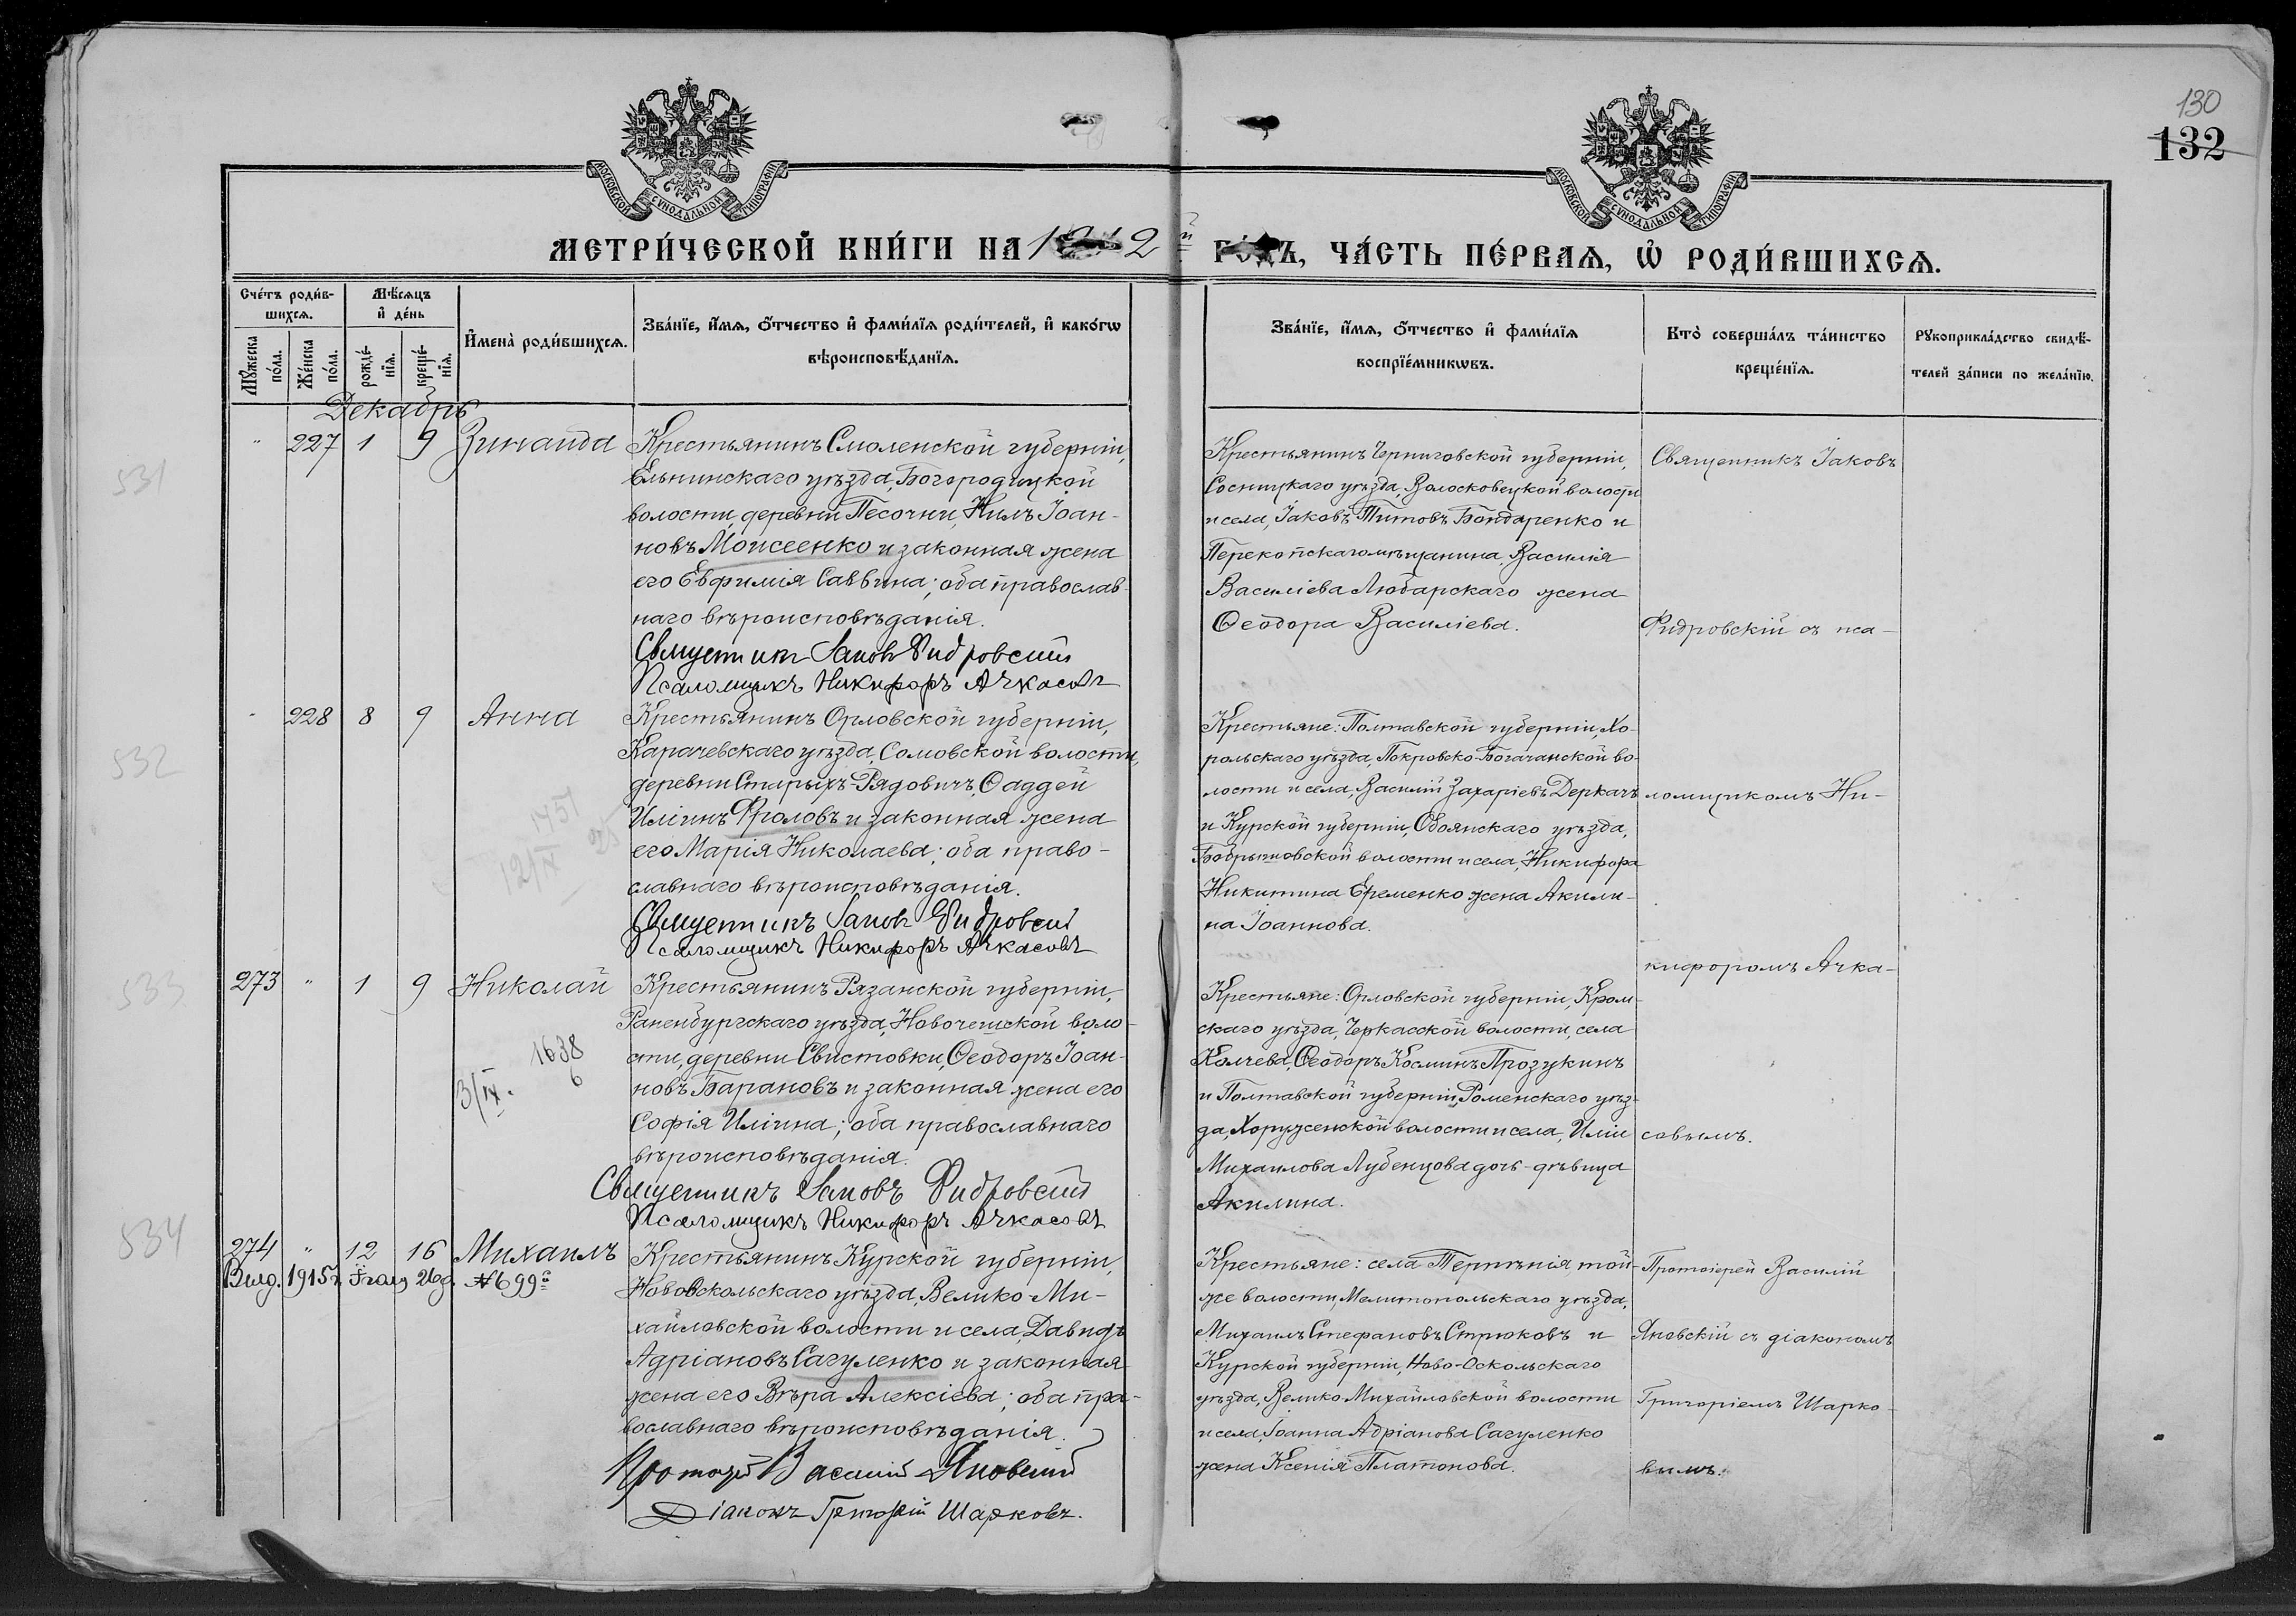 130
132
МОСКОВСКОЙ СУНОДАЛЬНОЙ ТИПОГРАФІИ
МОСКОВСКОЙ СУНОДАЛЬНОЙ ТИПОГРАФІИ
МЕТРИ́ЧЕСКОЙ КНИ́ГИ НА 1912й ГО́ДЪ, ЧА́СТЬ ПЕ́РВАѦ, Ѡ҆ РОДИ́ВШИХСѦ.
Сче́тъ роди́в-
шихсѧ.
Мꙋжеска по́ла.
Же́нска по́ла.
Мѣ́сѧцъ
и҆ де́нь
рожде́-
нїѧ.
креще́-
нїѧ.
И҆мена̀ роди́вшихсѧ.
Зва́нїе, и҆́мѧ, ѻ҆́тчество и҆ фами́лїѧ роди́телей, и҆ како́гѡ
вѣроисповѣ́данїѧ.
Зва́нїе, и҆́мѧ, ѻ҆́тчество и҆ фами́лїѧ
воспрїе́мникѡвъ.
Кто̀ соверша́лъ та́инство
креще́нїѧ.
Рꙋкоприкла́дство свидѣ́-
телей за́писи по жела́нїю.
Декабрь
531
" 227 1 9 Зинаида
Крестьянинъ Смоленской губерніи,
Ельнинскаго уѣзда, Богородицкой
волости, деревни Песочни, Нилъ Іоан-
новъ Моисеенко и законная жена
его Евфимія Саввина; оба православ-
наго вѣроисповѣданія.
Священникъ Іаковъ Фидровскій
Псаломщикъ Никифоръ Ачкасовъ
Крестьянинъ Черниговской губерніи,
Сосницкаго уѣзда, Волосковецкой волости
и села, Іаковъ Титовъ Бондаренко и
Перекопскаго мѣщанина Василія
Василіева Любарскаго жена
Ѳеодора Василіева.
Священникъ Іаковъ
Фидровскій съ пса-
532
" 228 8 9 Анна
1451
12/IV 25
Крестьянинъ Орловской губерніи,
Карачевскаго уѣзда, Сомовской волости,
деревни Старыхъ-Рядовичъ, Ѳаддей
Иліинъ Фроловъ и законная жена
его Марія Николаева; оба право-
славнаго вѣроисповѣданія.
Священникъ Іаковъ Фидровскій
Псаломщикъ Никифоръ Ачкасовъ
Крестьяне: Полтавской губерніи, Хо-
рольскаго уѣзда, Покровско-Богачанской во-
лости и села, Василій Захаріевъ Деркачъ
и Курской губерніи, Обоянскаго уѣзда,
Бобрышовской волости и села, Никифора
Никитина Еременко жена Акили-
на Іоаннова.
ломщикомъ Ни-
кифоромъ Ачка-
533
273 " 1 9 Николай
1638
3/IX. 6
Крестьянинъ Рязанской губерніи,
Раненбургскаго уѣзда, Новочешской воло-
сти, деревни Свистовки, Ѳеодоръ Іоан-
новъ Барановъ и законная жена его
Софія Иліина; оба православнаго
вѣроисповѣданія.
Священникъ Іаковъ Фидровскій
Псаломщикъ Никифоръ Ачкасовъ
Крестьяне: Орловской губерніи, Кром-
скаго уѣзда, Черкасской волости, села
Колчева, Ѳеодоръ Косминъ Прозукинъ
и Полтавской губерніи, Роменскаго уѣз-
да, Хоруженской волости и села, Иліи
Михаилова Лубенцова дочь-дѣвица
Акилина.
совымъ.
534
274 " 12 16 Михаилъ
Выд. 1915г. 26д. №699й
Крестьянинъ Курской губерніи,
Новооскольскаго уѣзда, Велико-Ми-
хайловской волости и села, Давидъ
Адріановъ Сагуленко и законная
жена его Вѣра Алексіева; оба пра-
вославнаго вѣроисповѣданія.
Протоіерей Василій Яновскій
Діаконъ Григорій Шарковъ.
Крестьяне: села Терпѣнія той-
же волости, Мелитопольскаго уѣзда,
Михаилъ Стефановъ Стрюковъ и
Курской губерніи, Ново-Оскольскаго
уѣзда, Велико Михайловской волости
и села, Іоанна Адріанова Сагуленко
жена Ксенія Платонова.
Протоіерей Василій
Яновскій съ діакономъ
Григоріемъ Шарко-
вымъ.